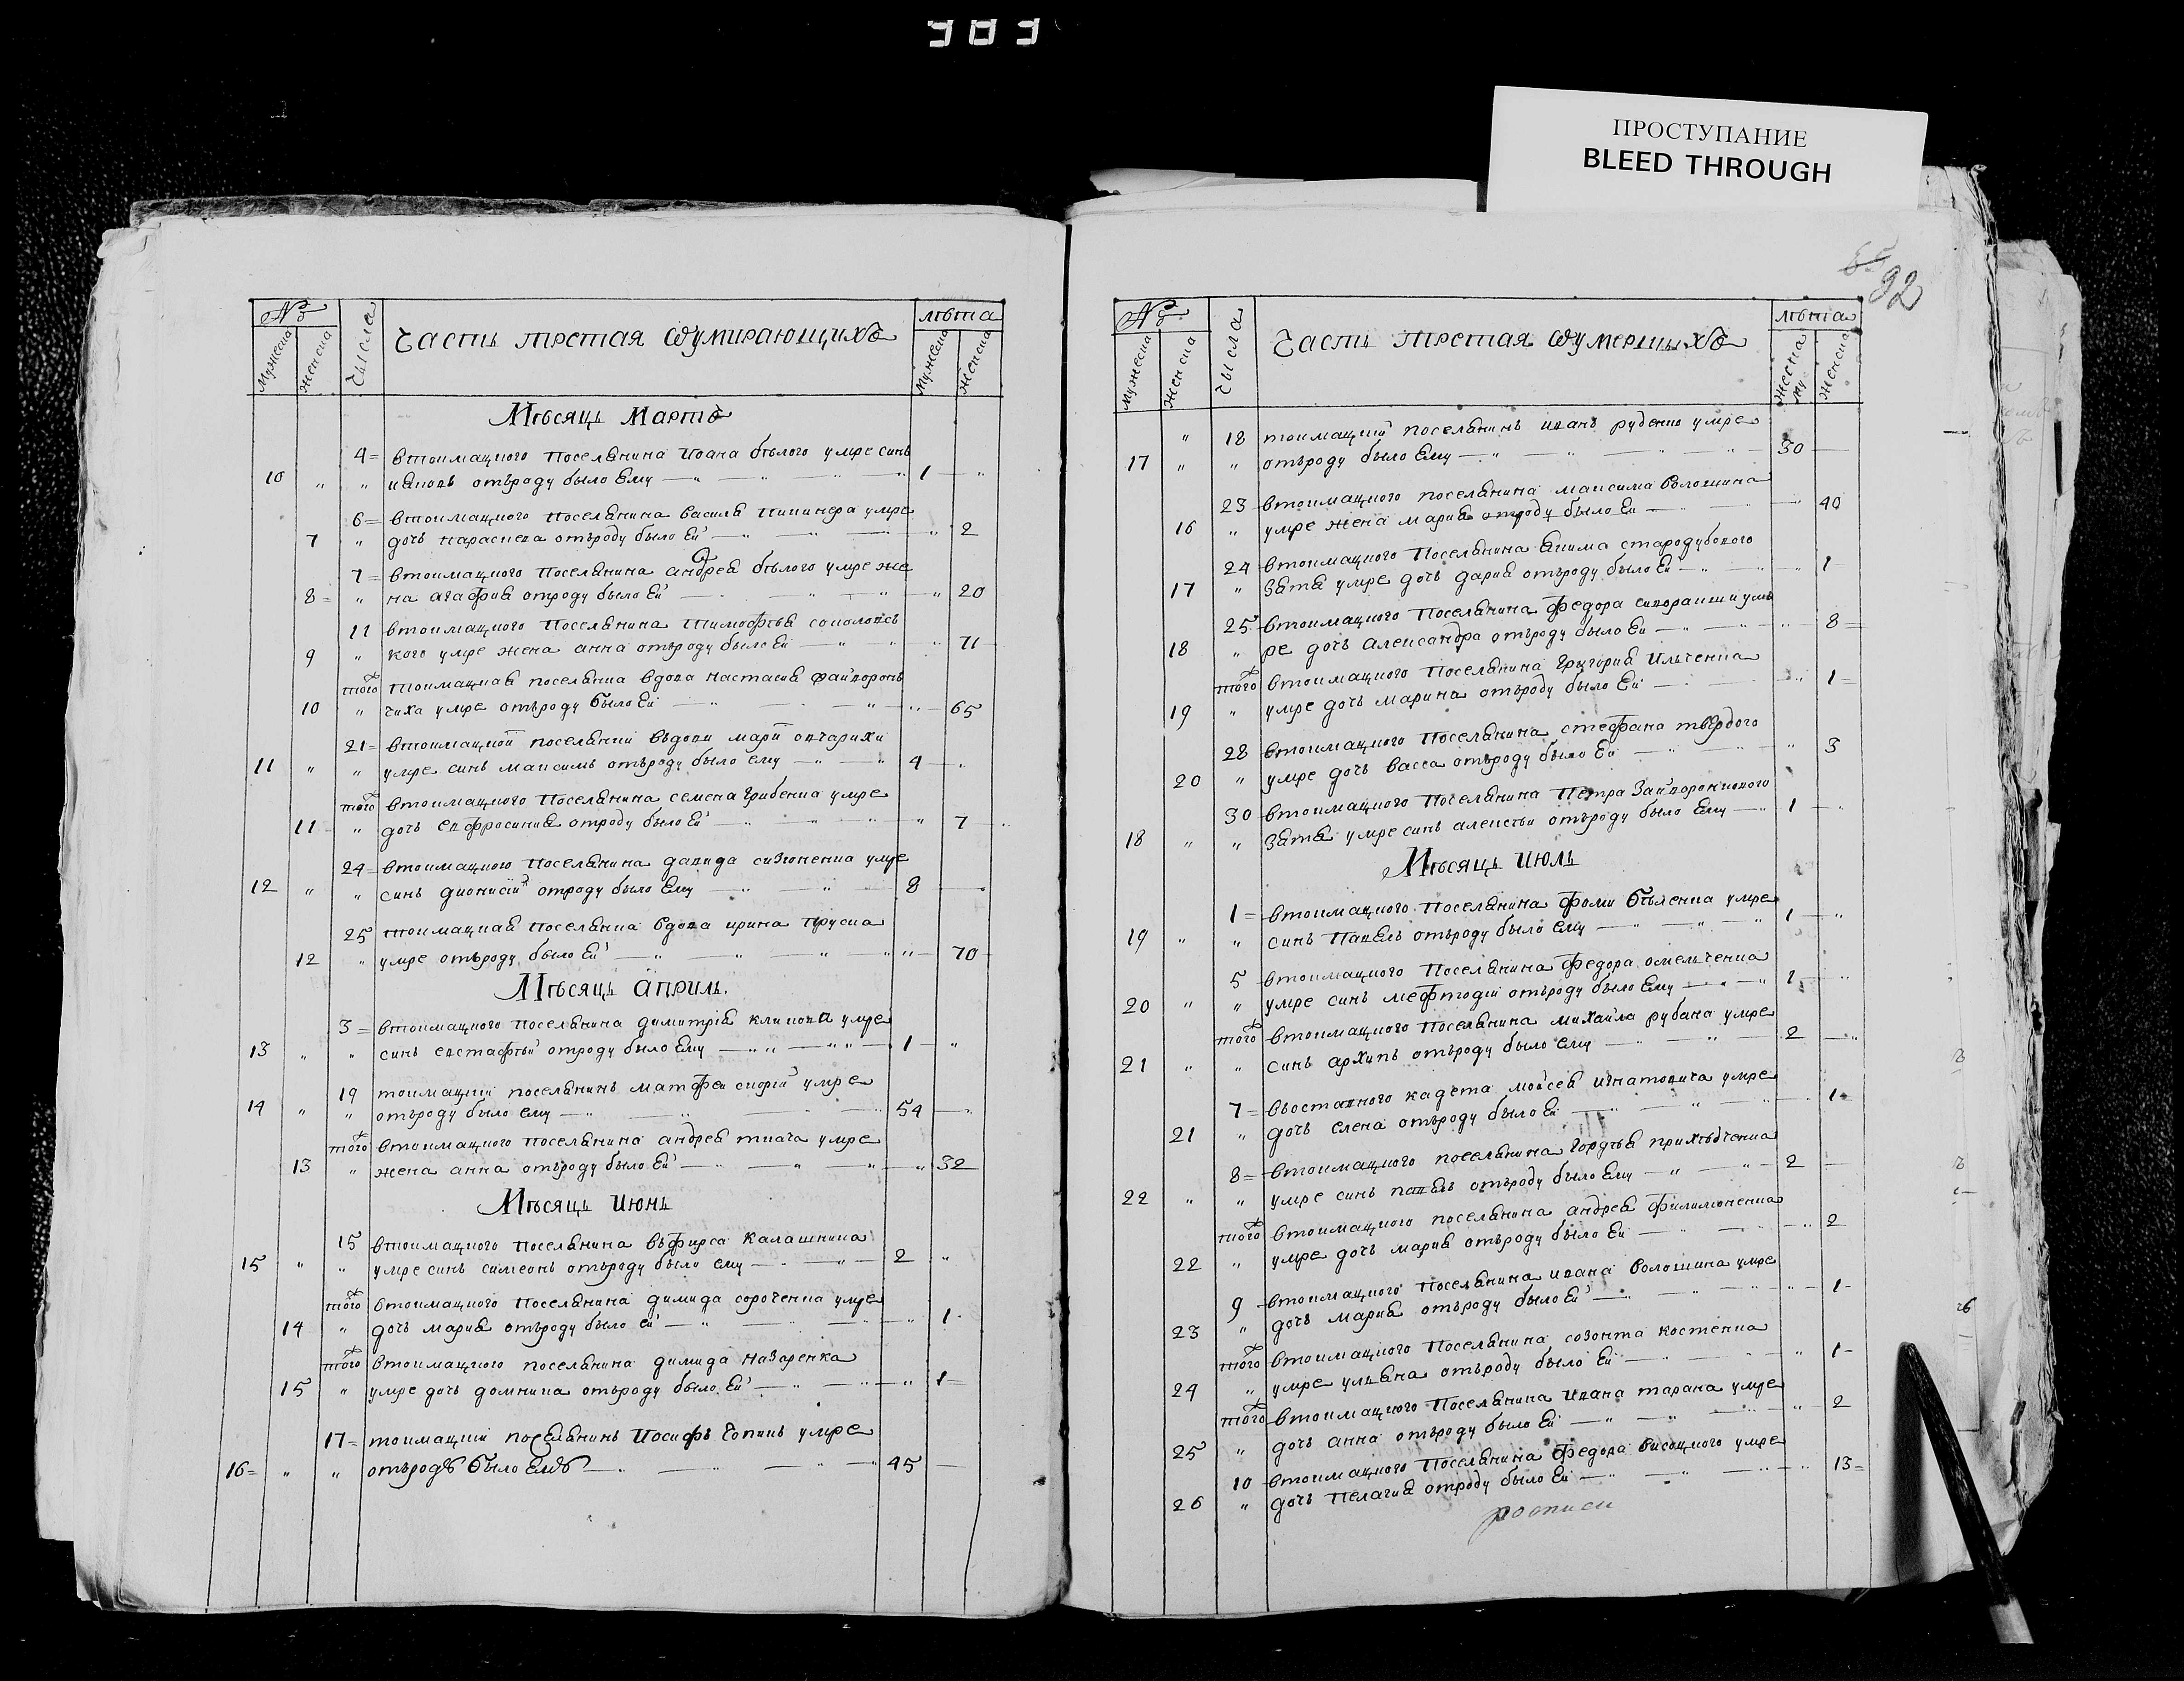 383
ПРОСТУПАНИЕ
BLEED THROUGH
92
№
мужеска
женска
Числа
Часть третая Ѿумирающихъ
лѣта
мужеска
женска
Мѣсяць Мартъ
4 = втокмацкого поселянина Иоана бѣлого умре синъ
10 " " иаковъ отъроду было Ему 1 "
6 = втокмацкого поселянина василя пикинера умре
7 " дочь параскева отъроду было Ей " 2
7 = втокмацкого поселянина андрея бѣлого умре же
8 = " на агафия отроду было Ей " 20
11 втокмацкого поселянина Тимофѣя соколовсь
9 " кого умре жена анна отъроду было Ей " 71
того токмацкая поселянка вдова настасия файворонь
10 " чиха умре отъроду было Ей " 65
21 = втокмацкой поселянки въдови марїи овчарихи
11 " " умре синъ максимъ отъроду было ему 4 "
того втокмацкого поселянина семена грибенка умре
11 " дочь евфросиния отроду было Ей " 7
24 = втокмацкого поселянина давида сизоненка умре
12 " " синъ дионисїй отроду было Ему 8
25 токмацкая поселянка вдова ирина пруска
12 " умре отъроду было Ей " 70
Мѣсяць Априль
3 = втокмацкого поселянина димитрїя кликова умре
13 " " синъ евстафѣй отроду было Ему 1 "
19 токмацкїй поселянинъ матфей скорїй умре
14 " " отъроду было ему 54
того втокмацкого поселянина андрея ткача умре
13 " жена анна отъроду было Ей " 32
Мѣсяць Июнь
15 втокмацкого поселянина въфирса калашника
15 " " умре синъ симеонъ отъроду было ему 2 "
того втокмацкого поселянина димида сороченка умре
14 " дочь мария отъроду было ей " 1
того втокмацкого поселянина димида назаренка
15 " умре дочь домника отъроду было Ей " 1
17 = токмацкий поселянинъ Иосифъ Чопикъ умре
16 = " " отъроду было Ему 45
№
мужеска
женска
Числа
Часть третая Ѿумершыхъ
лѣта
мужеска
женска
" 18 токмацкїй поселянинъ иванъ руденко умре
17 " " отъроду было Ему 30
23 втокмацкого поселянина максима волошина
16 " умре жена мария отроду было Ей 40
24 втокмацкого поселянина Якима стародубового
17 " Зятя умре дочь дария отъроду было Ей " 1
25 втокмацкого поселянина федора скоракии ум
18 " ре дочь александра отъроду было Ей " 8
того втокмацкого поселянина Григория Ильченка
19 " умре дочь марина отъроду было Ей " 1
28 втокмацкого поселянина стефана твердого
20 " умре дочь васса отъроду было Ей " 3
30 втокмацкого поселянина петра Зайворонкового
18 " " Зятя умре синъ алексѣи отъроду было Ему 1 "
Мѣсяць Июль
1 = втокмацкого поселянина фоми бѣленка умре
19 " " синъ павелъ отъроду было ему 1 "
5 втокмацкого поселянина федора омельченка
20 " " умре синъ мефтодїй отъроду было Ему 1 "
того втокмацкого поселянина михайла рубана умре
21 " " синъ архипъ отъроду было ему 2 "
7 = въоставного кадета мойсея игнатовича умре
21 " дочь елена отъроду было Ей 1
8 = втокмацкого поселянина гордѣя прихѣдченка
22 " " умре синъ павелъ отъроду было Ему 2
того втокмацкого поселянина андрея филимоненка
22 " умре дочь мария отъроду было Ей " 2
9 втокмацкого поселянина ивана волошина умре
23 " дочь мария отъроду было Ей " 1
того втокмацкого поселянина созонта костенка
24 " умре уляна отъроду было Ей " 1
того втокмацкого поселянина Ивана тарана умре
25 " дочь анна отъроду было Ей " 2
10 втокмацкого поселянина федора висоцкого умре
26 " дочь пелагия отроду было Ей " 13